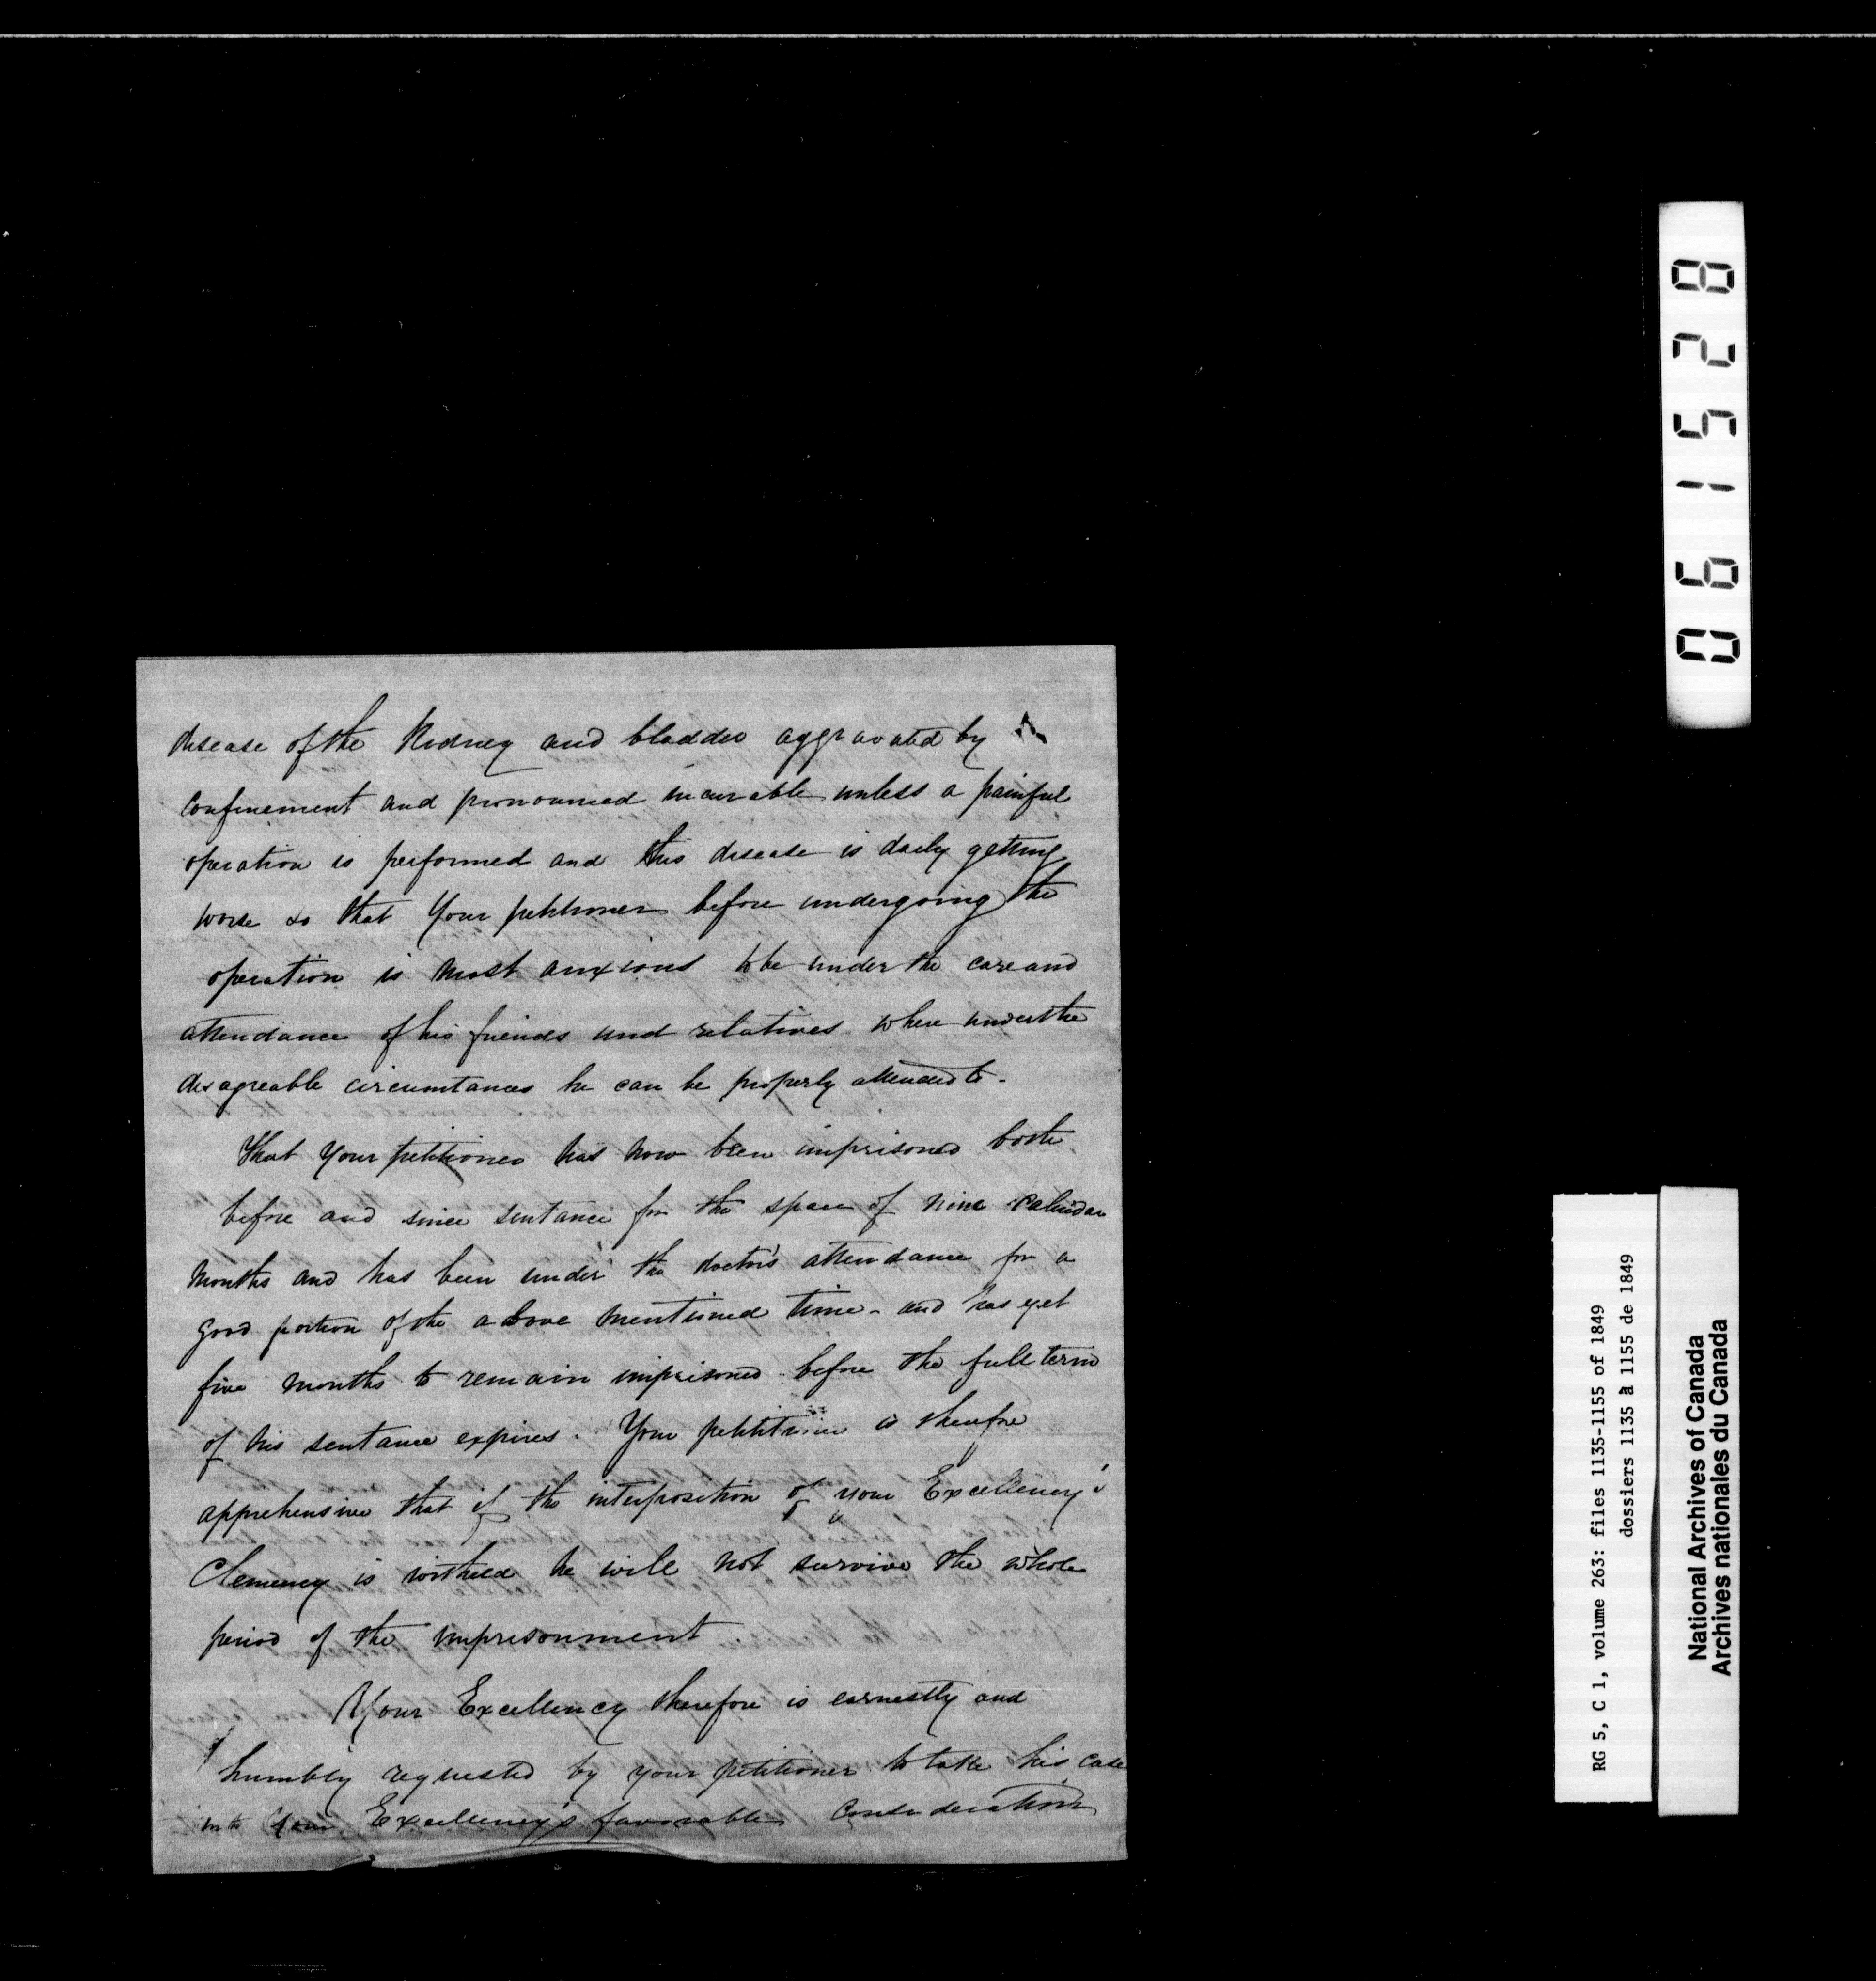 disease of the Kidney and bladder aggravated by
confinement and pronounced incurable unless a painful
operation is performed and this disease is daily getting
worse so that Your petitioner before undergoing the
operation is most anxious to be under the care and
attendance of his friends and relatives where under the
disagreable circumtances he can be properly attended to -
That Your petitioner has now been imprisoned both
before and since sentance for the space of nine Calendar
months and has been under the doctor's attendance for a
good portion of the above mentioned time - and has yet
five months to remain imprisoned before the full term
of his sentance expires. Your petitioner is therefore
apprehensive that if the interposition of your Excellency's
Clemency is witheld he will not survive the whole
period of the imprisonment
Your Excellency therefore is earnestly and
humbly requested by your petitioner to take his case
into Your Excellency's favorable Consideration
061528
RG 5, C 1, volume 263: files 1135-1155 of 1849
dossiers 1135 à 1155 de 1849
National Archives of Canada
Archives nationales du Canada